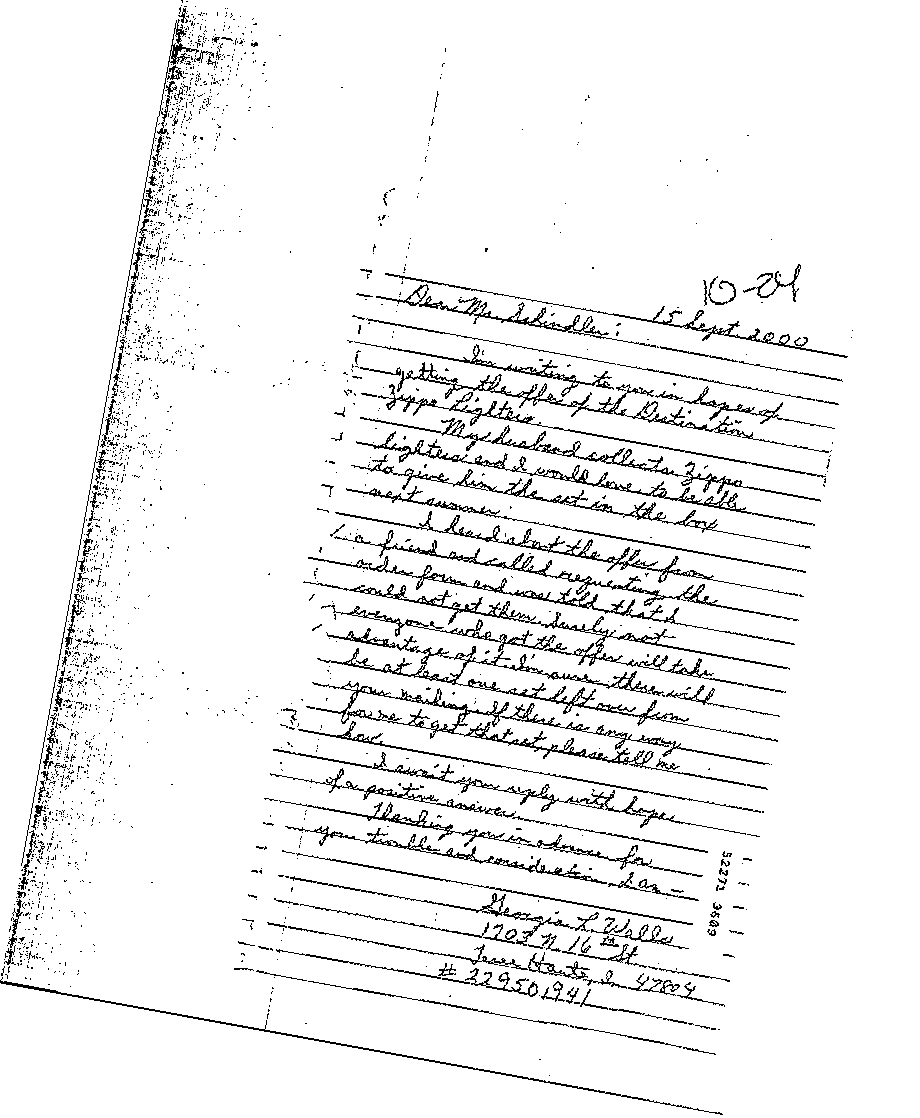 10-24
15 Sept 2000
Dear Mr. Schindler:
I'm writing to you in hopes of
getting the offer of the Destination
Zippo Lighters.
My husband collects Zippo
lighters and I would love to be able
to give him the set in the box
next summer.
I heard about the offer from
a friend and called requesting the
order form and was told that I
could not get them. Surely not
everyone who got the offer will take
advantage of it. I'm sure there will
be at least one set left over from
your mailing. If there is any way
for me to get that set, please tell me
how.
I await your reply with hope
of a positive answer.
Thanking you in advance for
your trouble and consideration, I am —
Georgia L. Walls
1703 N. 16th St
Terre Haute, In 47804
# 229501941
52271 3603